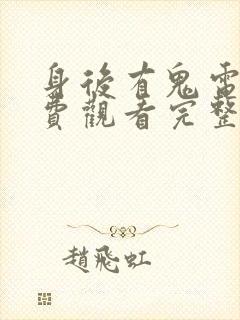 身後有鬼電
費觀看完整
趙飛虹